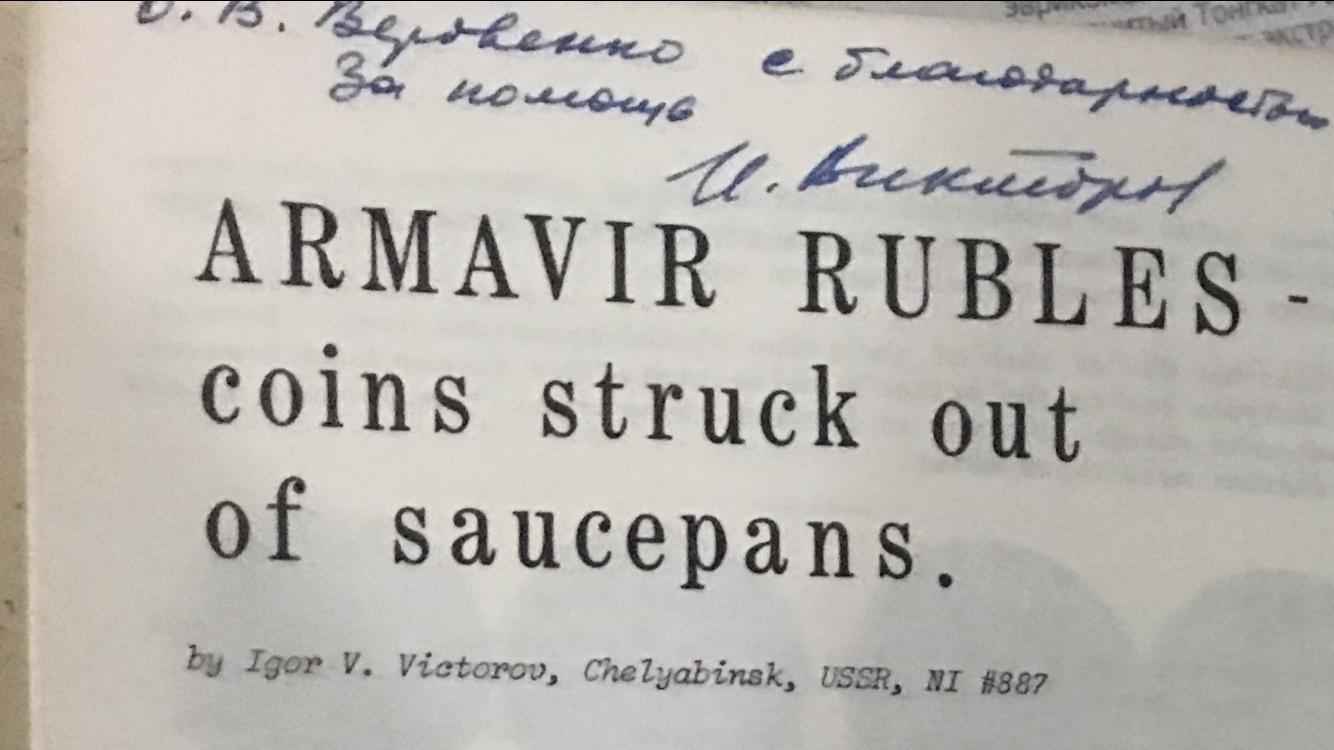 В. Веровенко с благодарностью
За помощь
И. Викторов
ARMAVIR RUBLES -
coins struck out
of saucepans.
by Igor V. Victorov, Chelyabinsk, USSR, NI #887